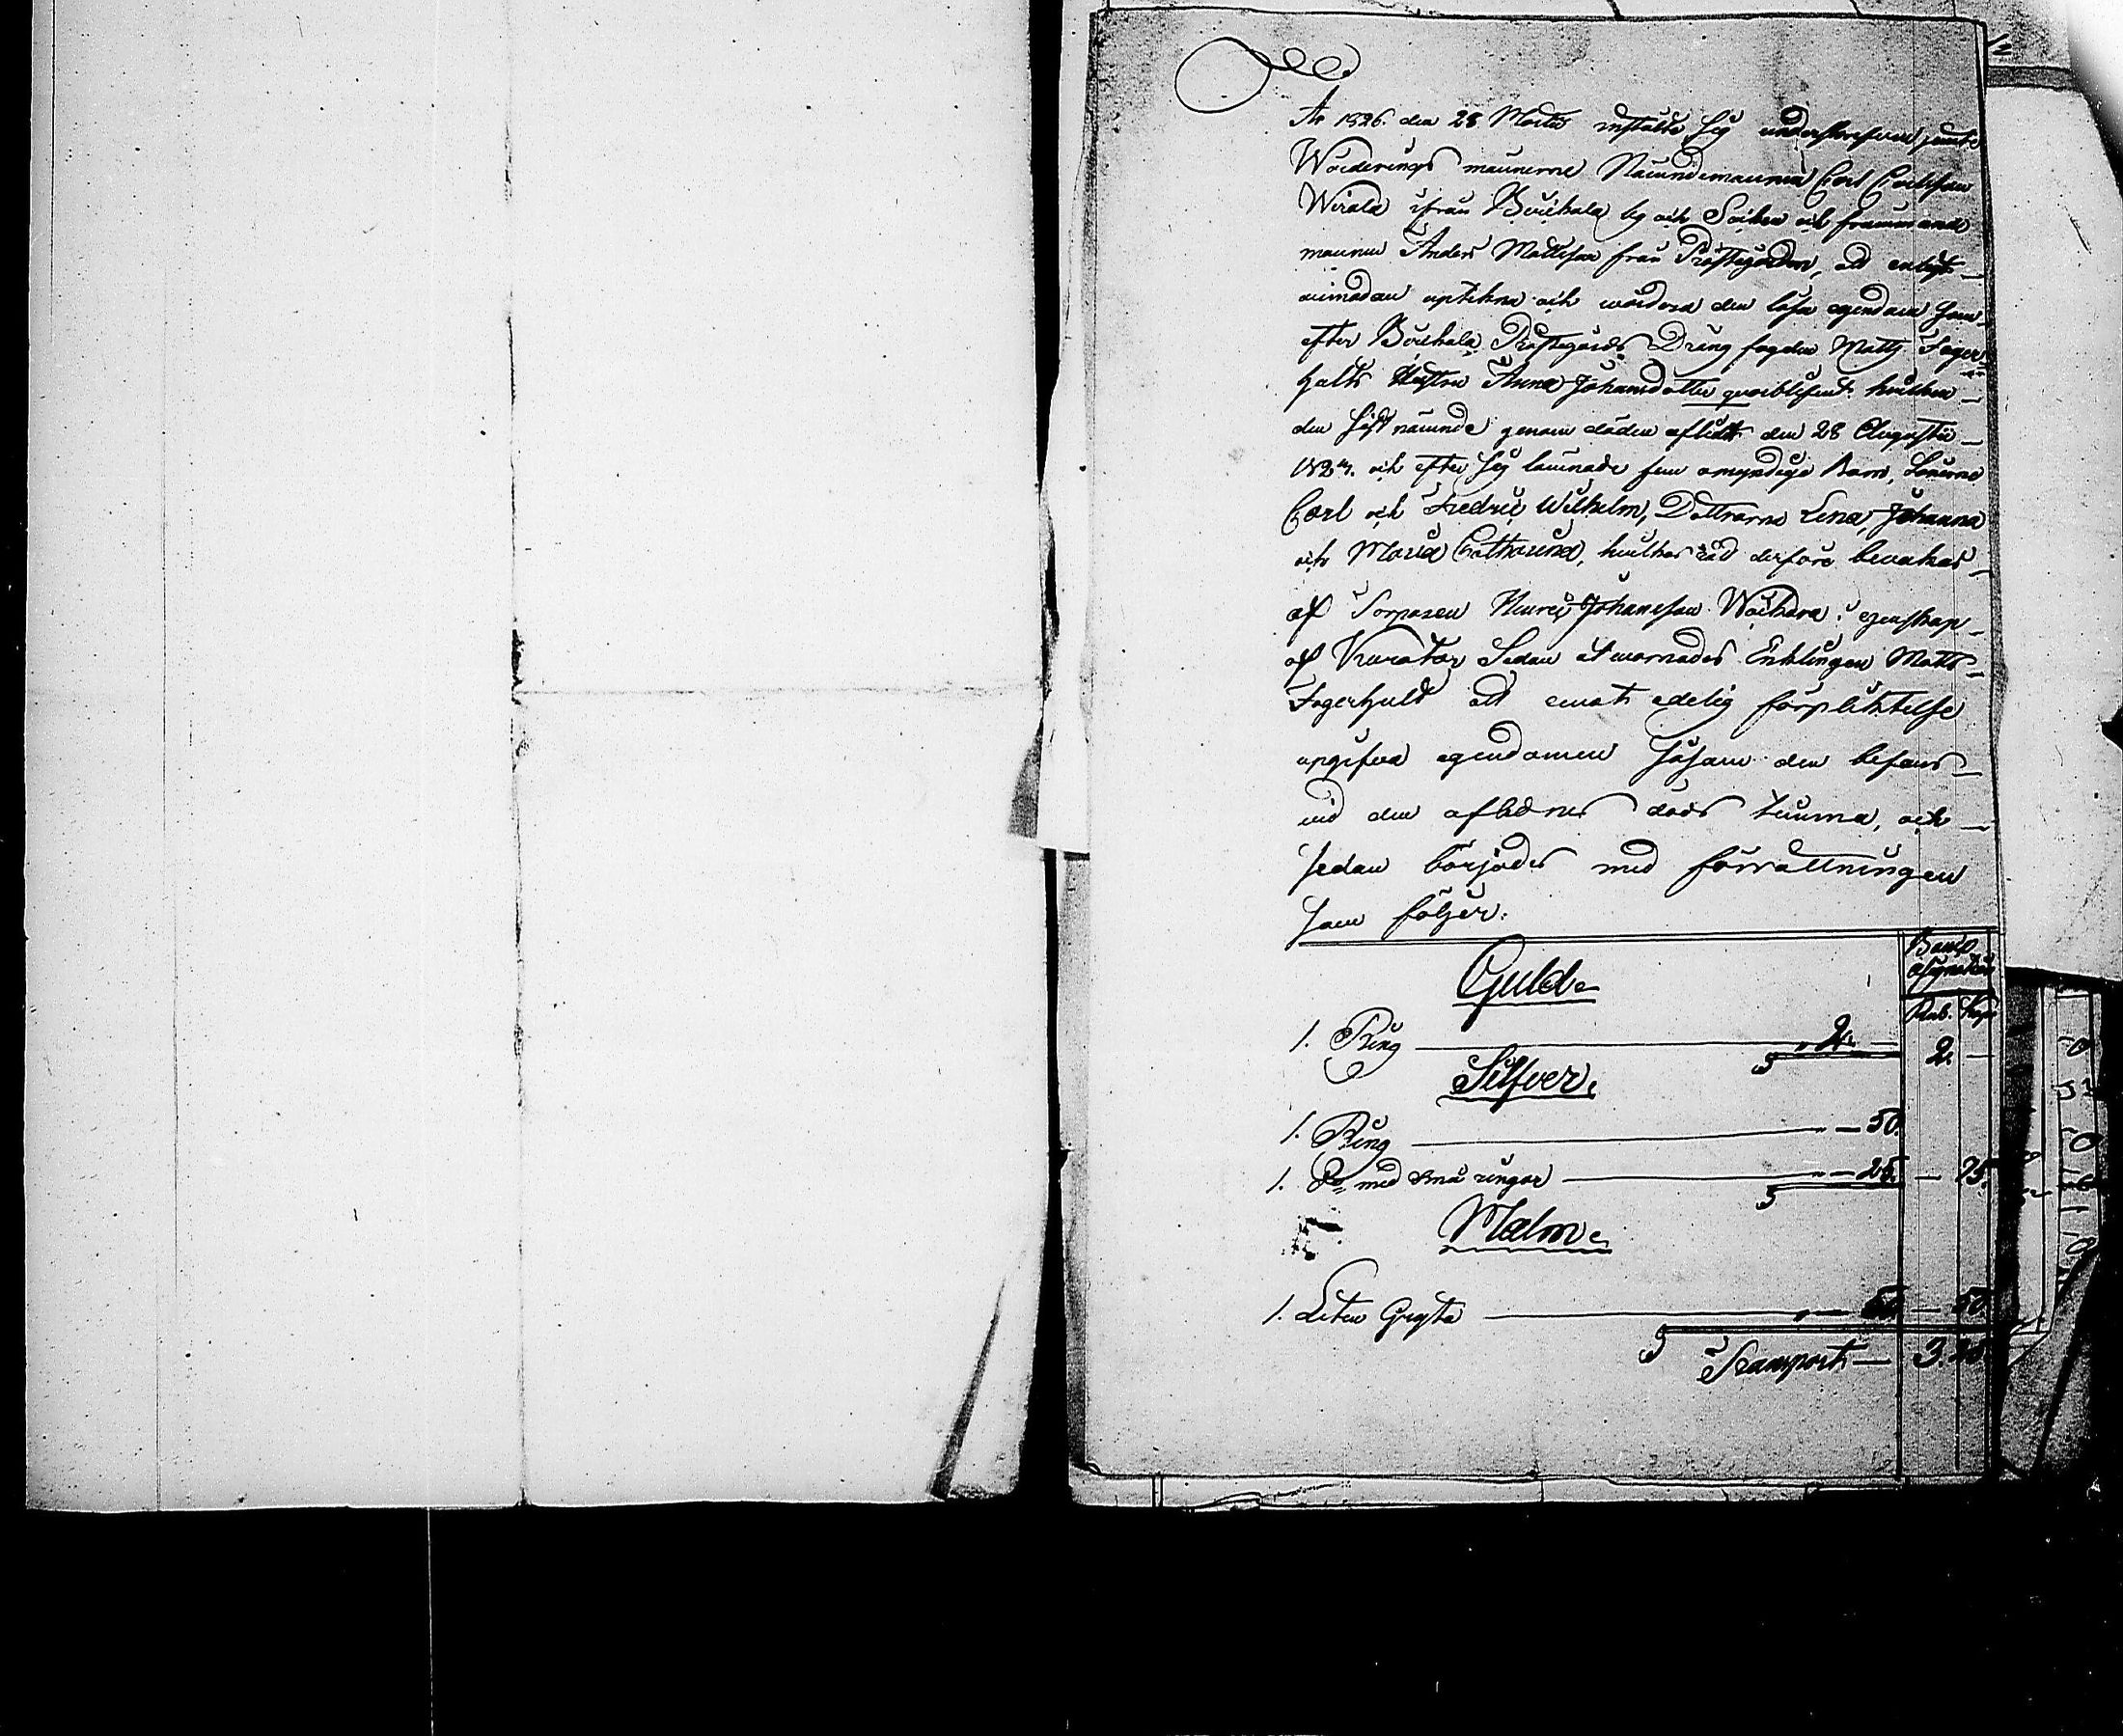 År 1826. den 28 Martii instälte sig underskrefven jemte
Wärderings männerne Nämndemannen Carl Carlsson
Wirala ifrån by och Socken och
mannen Anders Mattsson från Prästegården, att
uptekna och wärdera den lösa egendom som
efter Prästegårds Dräng fogden Matts Fager
hults Hustru Anna Johansdotter qvarblifvit. hvilken
den sist nämnde genom döden aflidit den 28 Augustii
182 och efter sig lämnade fem omyndige Barn, Sönerne
Carl och Fredric Wilhelm, Döttrarne Lena, Johanna
och Maria Catharina, hvilkas råd derföre bevakas
af Torparen Henric Johansson i egenskap
af Kurator Sedan åtvarnades Enklingen Matts
Fagerhult att emot edelig förpliktelse
upgifva egendomen såsom den befans
vid den aflednes döds timma, och
sedan börjades med förrättningen
som följer:
Banco
Rub. Kop.
Guld.
1. Ring — " 2. — 2. —
Silfver.
1. Ring — " — 50.
1. Do med små ringar — " — 25. — 75.
Malm.
1. Liten Gryta — " — 50. — 50.
Transport — 3. 25.